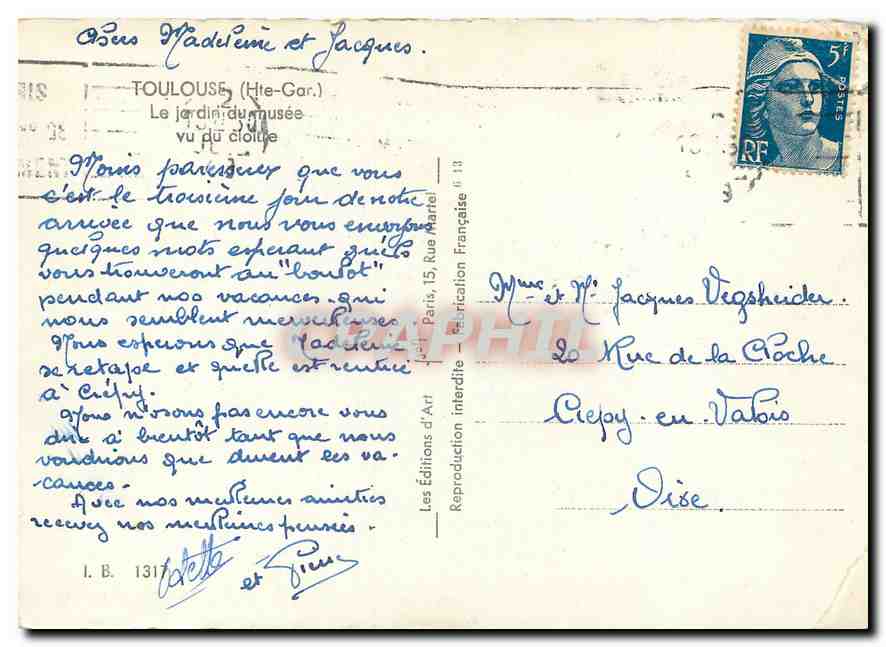 Chers Madeleine et Jacques.
TOULOUSE (Hte-Gar.)
Le jardin du musée
vu du cloître
Moins paresseux que vous
c'est le troisième jour de notre
arrivée que nous vous envoyons
quelques mots esperant qu'ils
vous trouveront au "boulot"
pendant nos vacances. qui
nous semblent merveilleuses
Nous esperons que Madeleine
se retape et qu'elle est rentrée
à Crépy.
Nous n'osons pas encore vous
dire à bientôt tant que nous
voudrions que durent les va-
cances.
Avec nos meilleures amitiés
recevez nos meilleures pensées.
Odette
et Pierre
I. B. 1317
Les Éditions d'Art
Paris, 15, Rue Martel
Reproduction interdite - Fabrication Française
5F
POSTES
RF
Mme et Mr Jacques Vegsheider.
20 Rue de la Cloche
Crépy-en-Valois
Oise.